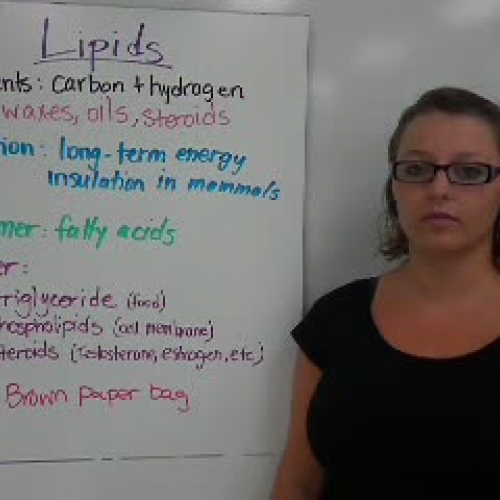 Lipids
nts: carbon + hydrogen
waxes, oils, steroids
ion: long-term energy
insulation in mammals
mer: fatty acids
er:
triglyceride (food)
phospholipids (cell membrane)
steroids (testosterone, estrogen, etc)
Brown paper bag